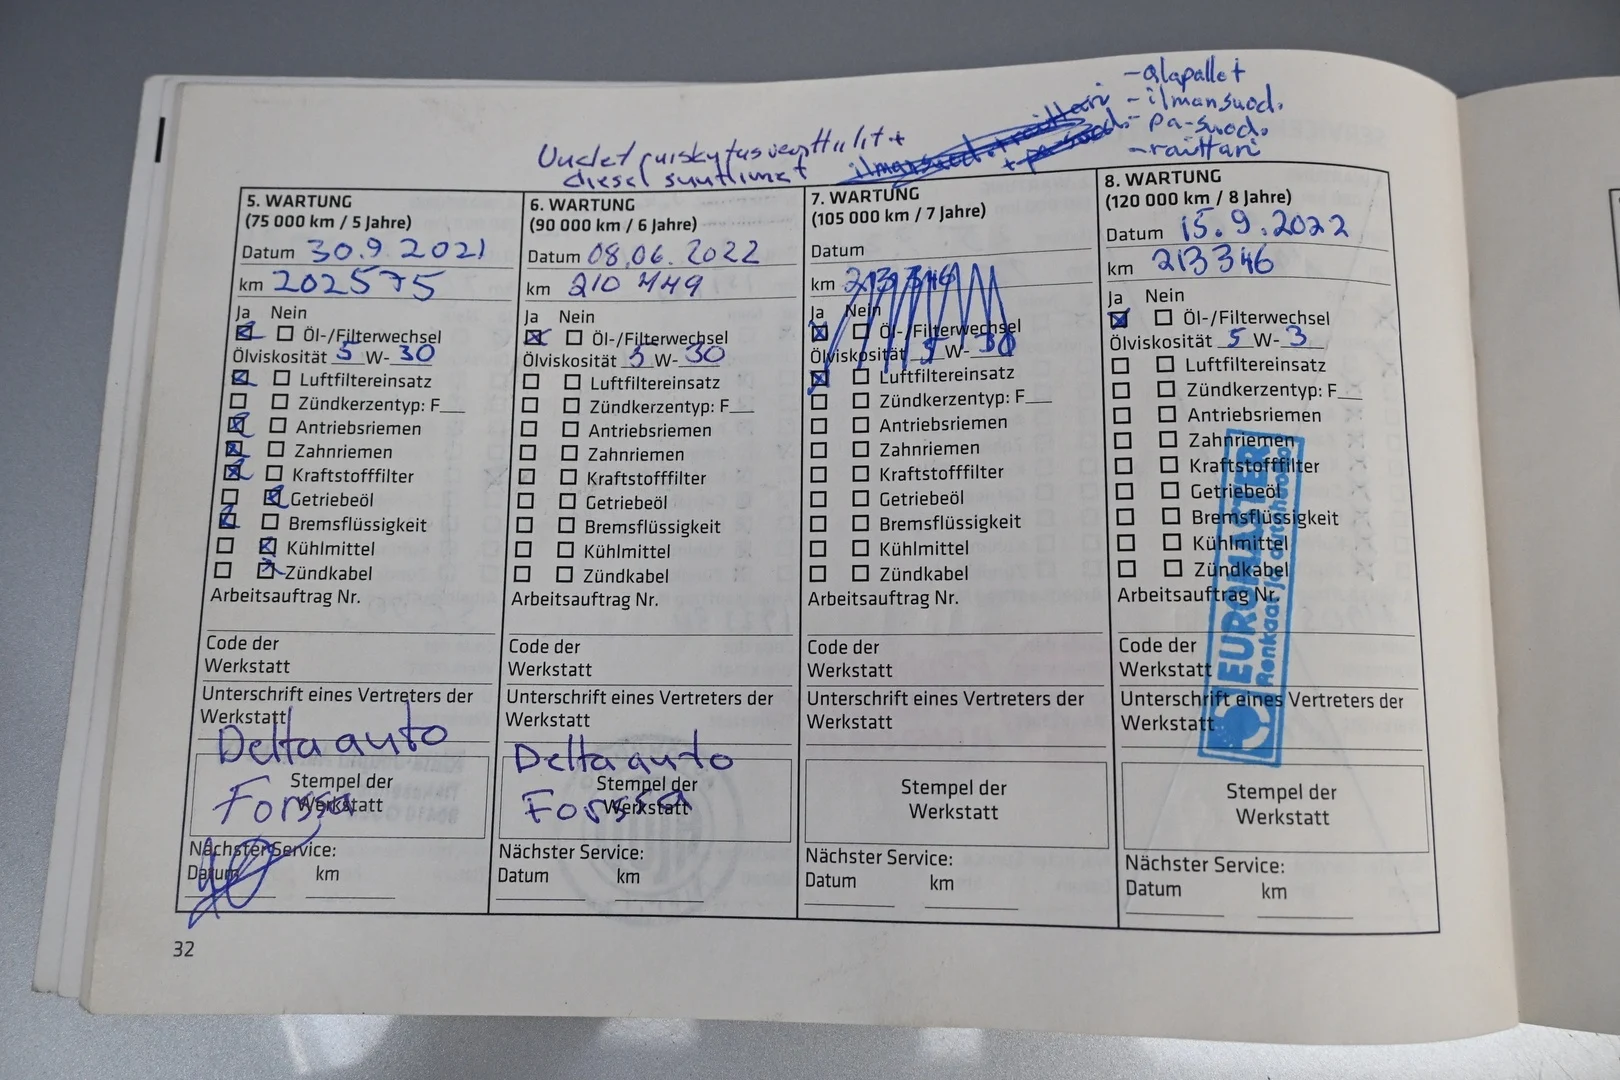 -alapallet
-ilmansuod.
-pa-suod.
-raittari
Uudet ruiskutusventtiilit +
diesel suuttimet
ilmansuod. + raittari
+ pa-suod.
5. WARTUNG
(75 000 km / 5 Jahre)
Datum 30.9.2021
km 202575
Ja Nein
Öl-/Filterwechsel
Ölviskosität 5 W- 30
Luftfiltereinsatz
Zündkerzentyp: F__
Antriebsriemen
Zahnriemen
Kraftstofffilter
Getriebeöl
Bremsflüssigkeit
Kühlmittel
Zündkabel
Arbeitsauftrag Nr.
Code der
Werkstatt
Unterschrift eines Vertreters der
Werkstatt
Delta auto
Stempel der
Werkstatt
Forssa
Nächster Service:
Datum km
6. WARTUNG
(90 000 km / 6 Jahre)
Datum 08.06.2022
km 210 449
Ja Nein
Öl-/Filterwechsel
Ölviskosität 5 W- 30
Luftfiltereinsatz
Zündkerzentyp: F__
Antriebsriemen
Zahnriemen
Kraftstofffilter
Getriebeöl
Bremsflüssigkeit
Kühlmittel
Zündkabel
Arbeitsauftrag Nr.
Code der
Werkstatt
Unterschrift eines Vertreters der
Werkstatt
Delta auto
Stempel der
Werkstatt
Forssa
Nächster Service:
Datum km
7. WARTUNG
(105 000 km / 7 Jahre)
Datum
km 213346
Ja Nein
Öl-/Filterwechsel
Ölviskosität 5 W- 30
Luftfiltereinsatz
Zündkerzentyp: F__
Antriebsriemen
Zahnriemen
Kraftstofffilter
Getriebeöl
Bremsflüssigkeit
Kühlmittel
Zündkabel
Arbeitsauftrag Nr.
Code der
Werkstatt
Unterschrift eines Vertreters der
Werkstatt
Stempel der
Werkstatt
Nächster Service:
Datum km
8. WARTUNG
(120 000 km / 8 Jahre)
Datum 15.9.2022
km 213346
Ja Nein
Öl-/Filterwechsel
Ölviskosität 5 W- 3
Luftfiltereinsatz
Zündkerzentyp: F__
Antriebsriemen
Zahnriemen
Kraftstofffilter
Getriebeöl
Bremsflüssigkeit
Kühlmittel
Zündkabel
Arbeitsauftrag Nr.
Code der
Werkstatt
Unterschrift eines Vertreters der
Werkstatt
EUROMASTER
Renkaat ja autohuolto
Stempel der
Werkstatt
Nächster Service:
Datum km
32